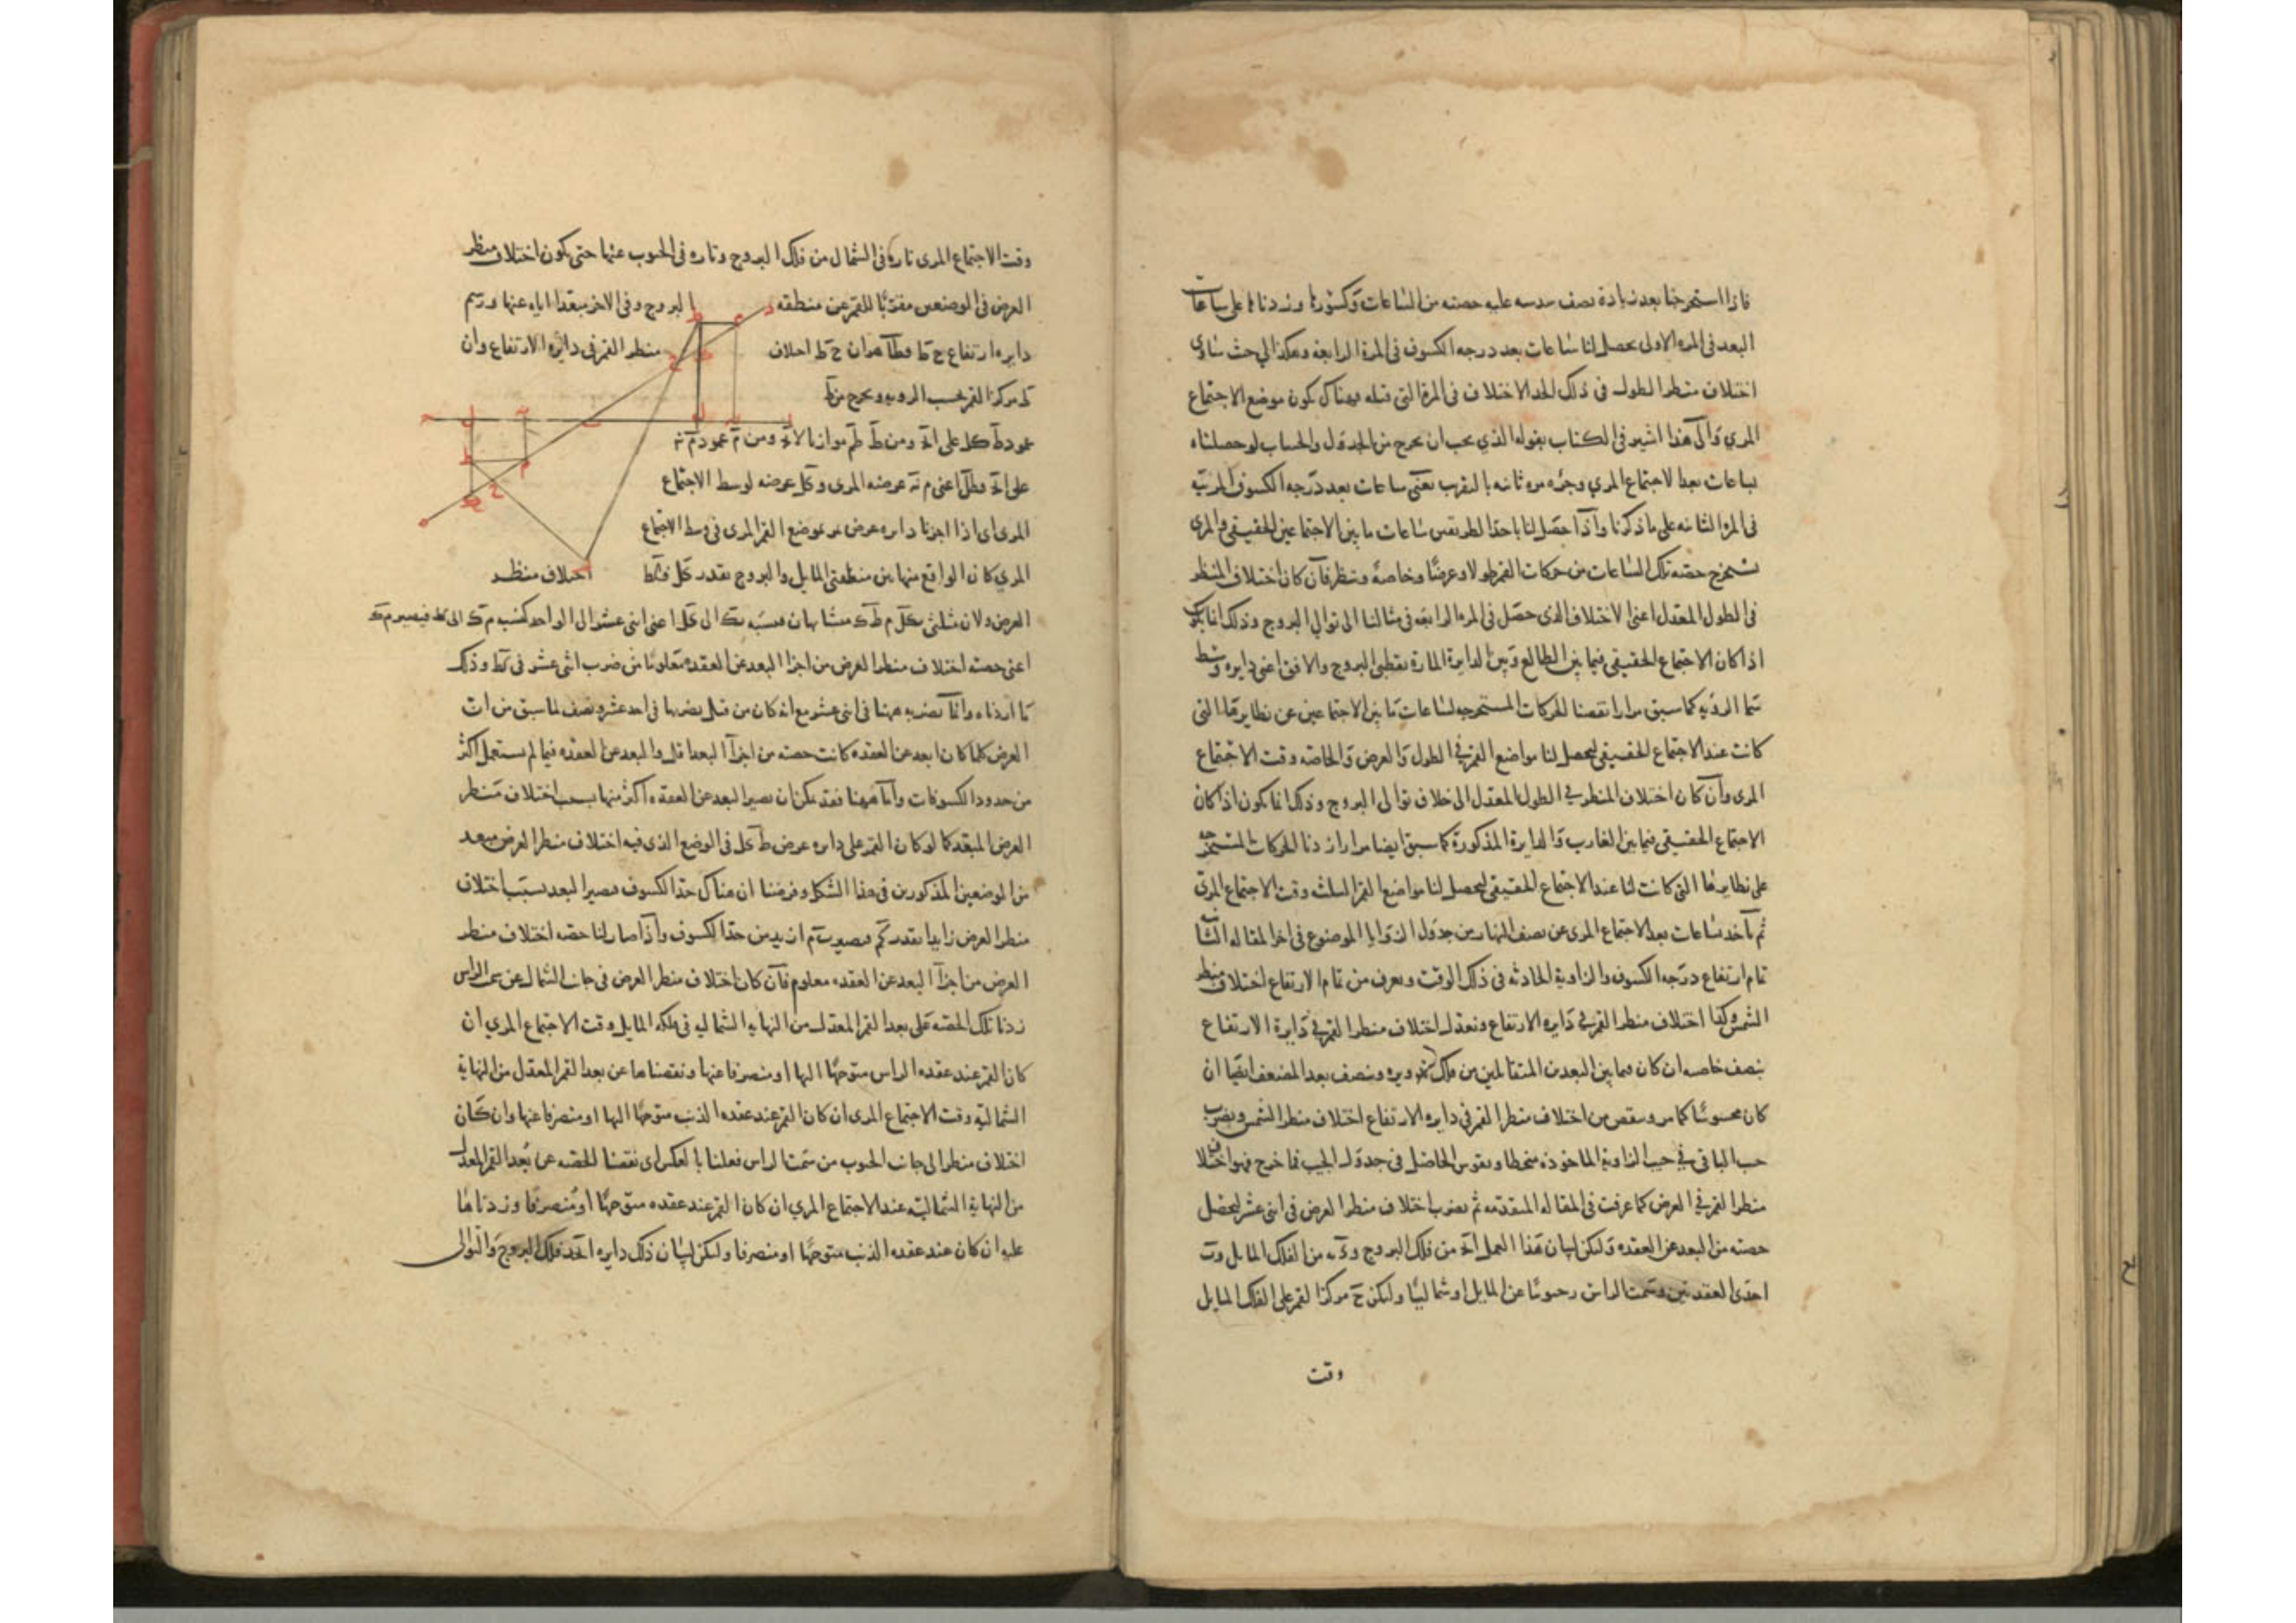 فاذا استخرجنا بعد زيادة نصف سدسه عليه حصته من الساعات وكسورها وزدناها على ساعات
البعد فى المره الاولى يحصل لنا ساعات بعد درجه الكسوف فى المرة الرابعة وهكذا الى حيث تساوى
اختلاف منظر الطول فى ذلك الحد الاختلاف فى المرة التى قبله فهناك يكون موضع الاجتماع
المرى والى هذا اشير فى الكتاب بقوله الذى يجب ان يخرج من الجدول والحساب لو حصلناه
بساعات بعد الاجتماع المرى وجزه مره ثانيه بالتقريب يعنى ساعات بعد درجه الكسوف المرتبه
فى المره الثانيه على ما ذكرنا واذا حصل لنا باحد الطريقين ساعات ما بين الاجتماعين الحقيقى والمرى
نستخرج حصه تلك الساعات من حركات القمر طولا وعرضا وخاصة وننظر فان كان اختلاف المنظر
فى الطول المعدل اعنى الاختلاف الذى حصل فى المره الرابعه فى مثالنا الى توالى البروج وذلك انما يكون
اذا كان الاجتماع الحقيقى فيما بين الطالع وبين الدايرة المارة بقطبى البروج والافق اعنى دايره وسط
سما الرؤيه كما سبق مرارا نقصنا الحركات المستخرجه لساعات ما بين الاجتماعين عن نظايرها التى
كانت عند الاجتماع الحقيقى ليحصل لنا مواضع القمر فى الطول والعرض والخاصه وقت الاجتماع
المرى وان كان اختلاف المنظر فى الطول المعدل الى خلاف توالى البروج وذلك انما يكون اذا كان
الاجتماع الحقيقى فيما بين الغارب والدايرة المذكورة كما سبق ايضا مرارا زدنا الحركات المستخرجه
على نظايرها التى كانت لنا عند الاجتماع الحقيقى ليحصل لنا مواضع القمر الثلثه وقت الاجتماع المرى
ثم ناخذ بساعات بعد الاجتماع المرى عن نصف النهار من جدول الزوايا الموضوع فى اخر المقاله الثانيه
تمام ارتفاع درجه الكسوف والزاوية الحادثه فى ذلك الوقت ويعرف من تمام الارتفاع اختلاف منظر
الشمس وكذا اختلاف منظر القمر فى دايره الارتفاع ونعدل اختلاف منظر القمر فى دايرة الارتفاع
بنصف خاصه ان كان فيما بين البعدين المتقابلين من فلك تدويره وبنصف بعد المضعف ايضا ان
كان محسوسا كما مر وينقص من اختلاف منظر القمر فى دايره الارتفاع اختلاف منظر الشمس ويضرب
جيب الباقى فى جيب الزاوية الماخوذه منحطا ويقوس الحاصل فى جدول الجيب فما خرج فهو اختلاف
منظر القمر فى العرض كما عرفت فى المقاله المتقدمه ثم يضرب اختلاف منظر العرض فى اثنى عشر ليحصل
حصته من البعد عن العقده وليكن لبيان هذا العمل من فلك البروج من الفلك المايل
احدى العقدتين وسمت الراس جنوبيا عن المايل او شماليا وليكن ح مركز القمر على الفلك المايل
وقت
وقت الاجتماع المرى تارة فى الشمال من فلك البروج وتاره فى الجنوب عنها حتى يكون اختلاف منظر
العرض فى الوضعين مقربا للقمر عن منطقه البروج وفى الاخر مبعدا اياه عنها ورسم
دايره ارتفاع ح ط فظاهر ان ح ط اختلاف منظر القمر فى دايرة الارتفاع وان
ط مركز القمر بحسب الرويه ويخرج من ط
عمود ط ك ل على ومن ط ط م موازيا ومن م عمود م
على اعنى م عرضه المرى و ك ل عرضه لوسط الاجتماع
المرى اى اذا اجزنا دايره عرض تمر بموضع القمر المرى فى وسط الاجتماع
المرى كان الواقع منها بين منطقتى المايل والبروج بقدر ك ل اختلاف منظر
العرض ولان مثلثى م ط ك متشابهان فنسبه الى ك ل اعنى اثنى عشر الى الواحد كنسبه م ك الى ك ط فيصير م ك
اعنى حصه اختلاف منظر العرض من اجزا البعد عن العقده معلوما من ضرب اثنى عشر فى ك ط وذلك
ما اردناه وانما نضربه ههنا فى اثنى عشر مع انه كان من قبل يضربها فى احد عشر ونصف لما سبق من ان
العرض كلما كان ابعد عن العقده كانت حصته من اجزا البعد اقل والبعد عن العقده فيما لم يستعمل اكثر
من حدود الكسوفات واما ههنا فقد يمكن ان يصير البعد عن العقده اكثر منها بسبب اختلاف منظر
العرض المبعد كما لو كان القمر على دايره عرض ط ك ل فى الوضع الذى فيه اختلاف منظر العرض مبعد
من الموضعين المذكورين فى هذا الشكل وفرضنا ان هناك حد الكسوف فيصير البعد بسبب اختلاف
منظر العرض زايدا بقدر ك م فيصير ازيد من حد الكسوف واذا صار لنا حصه اختلاف منظر
العرض من اجزا البعد عن العقده معلوم فان كان اختلاف منظر العرض فى جانب الشمال عن سمت الراس
زدنا تلك الحصه على بعد القمر المعدل من النهايه الشماليه فى فلكه المايل وقت الاجتماع المرى ان
كان القمر عند عقده الراس متوجها اليها او منصرفا عنها ونقصناها عن بعد القمر المعدل من النهاية
الشماليه وقت الاجتماع المرى ان كان القمر عند عقده الذنب متوجها اليها او منصرفا عنها وان كان
اختلاف منظر الى جانب الجنوب من سمت الراس فعلنا بالعكس اى نقصنا الحصه عن بعد القمر المعدل
من النهاية الشماليه عند الاجتماع المرى ان كان القمر عند عقده متوجها او منصرفا وزدناها
عليه ان كان عند عقده الذنب متوجها او منصرفا وليكن لبيان ذلك دايره فلك البروج والتوالى